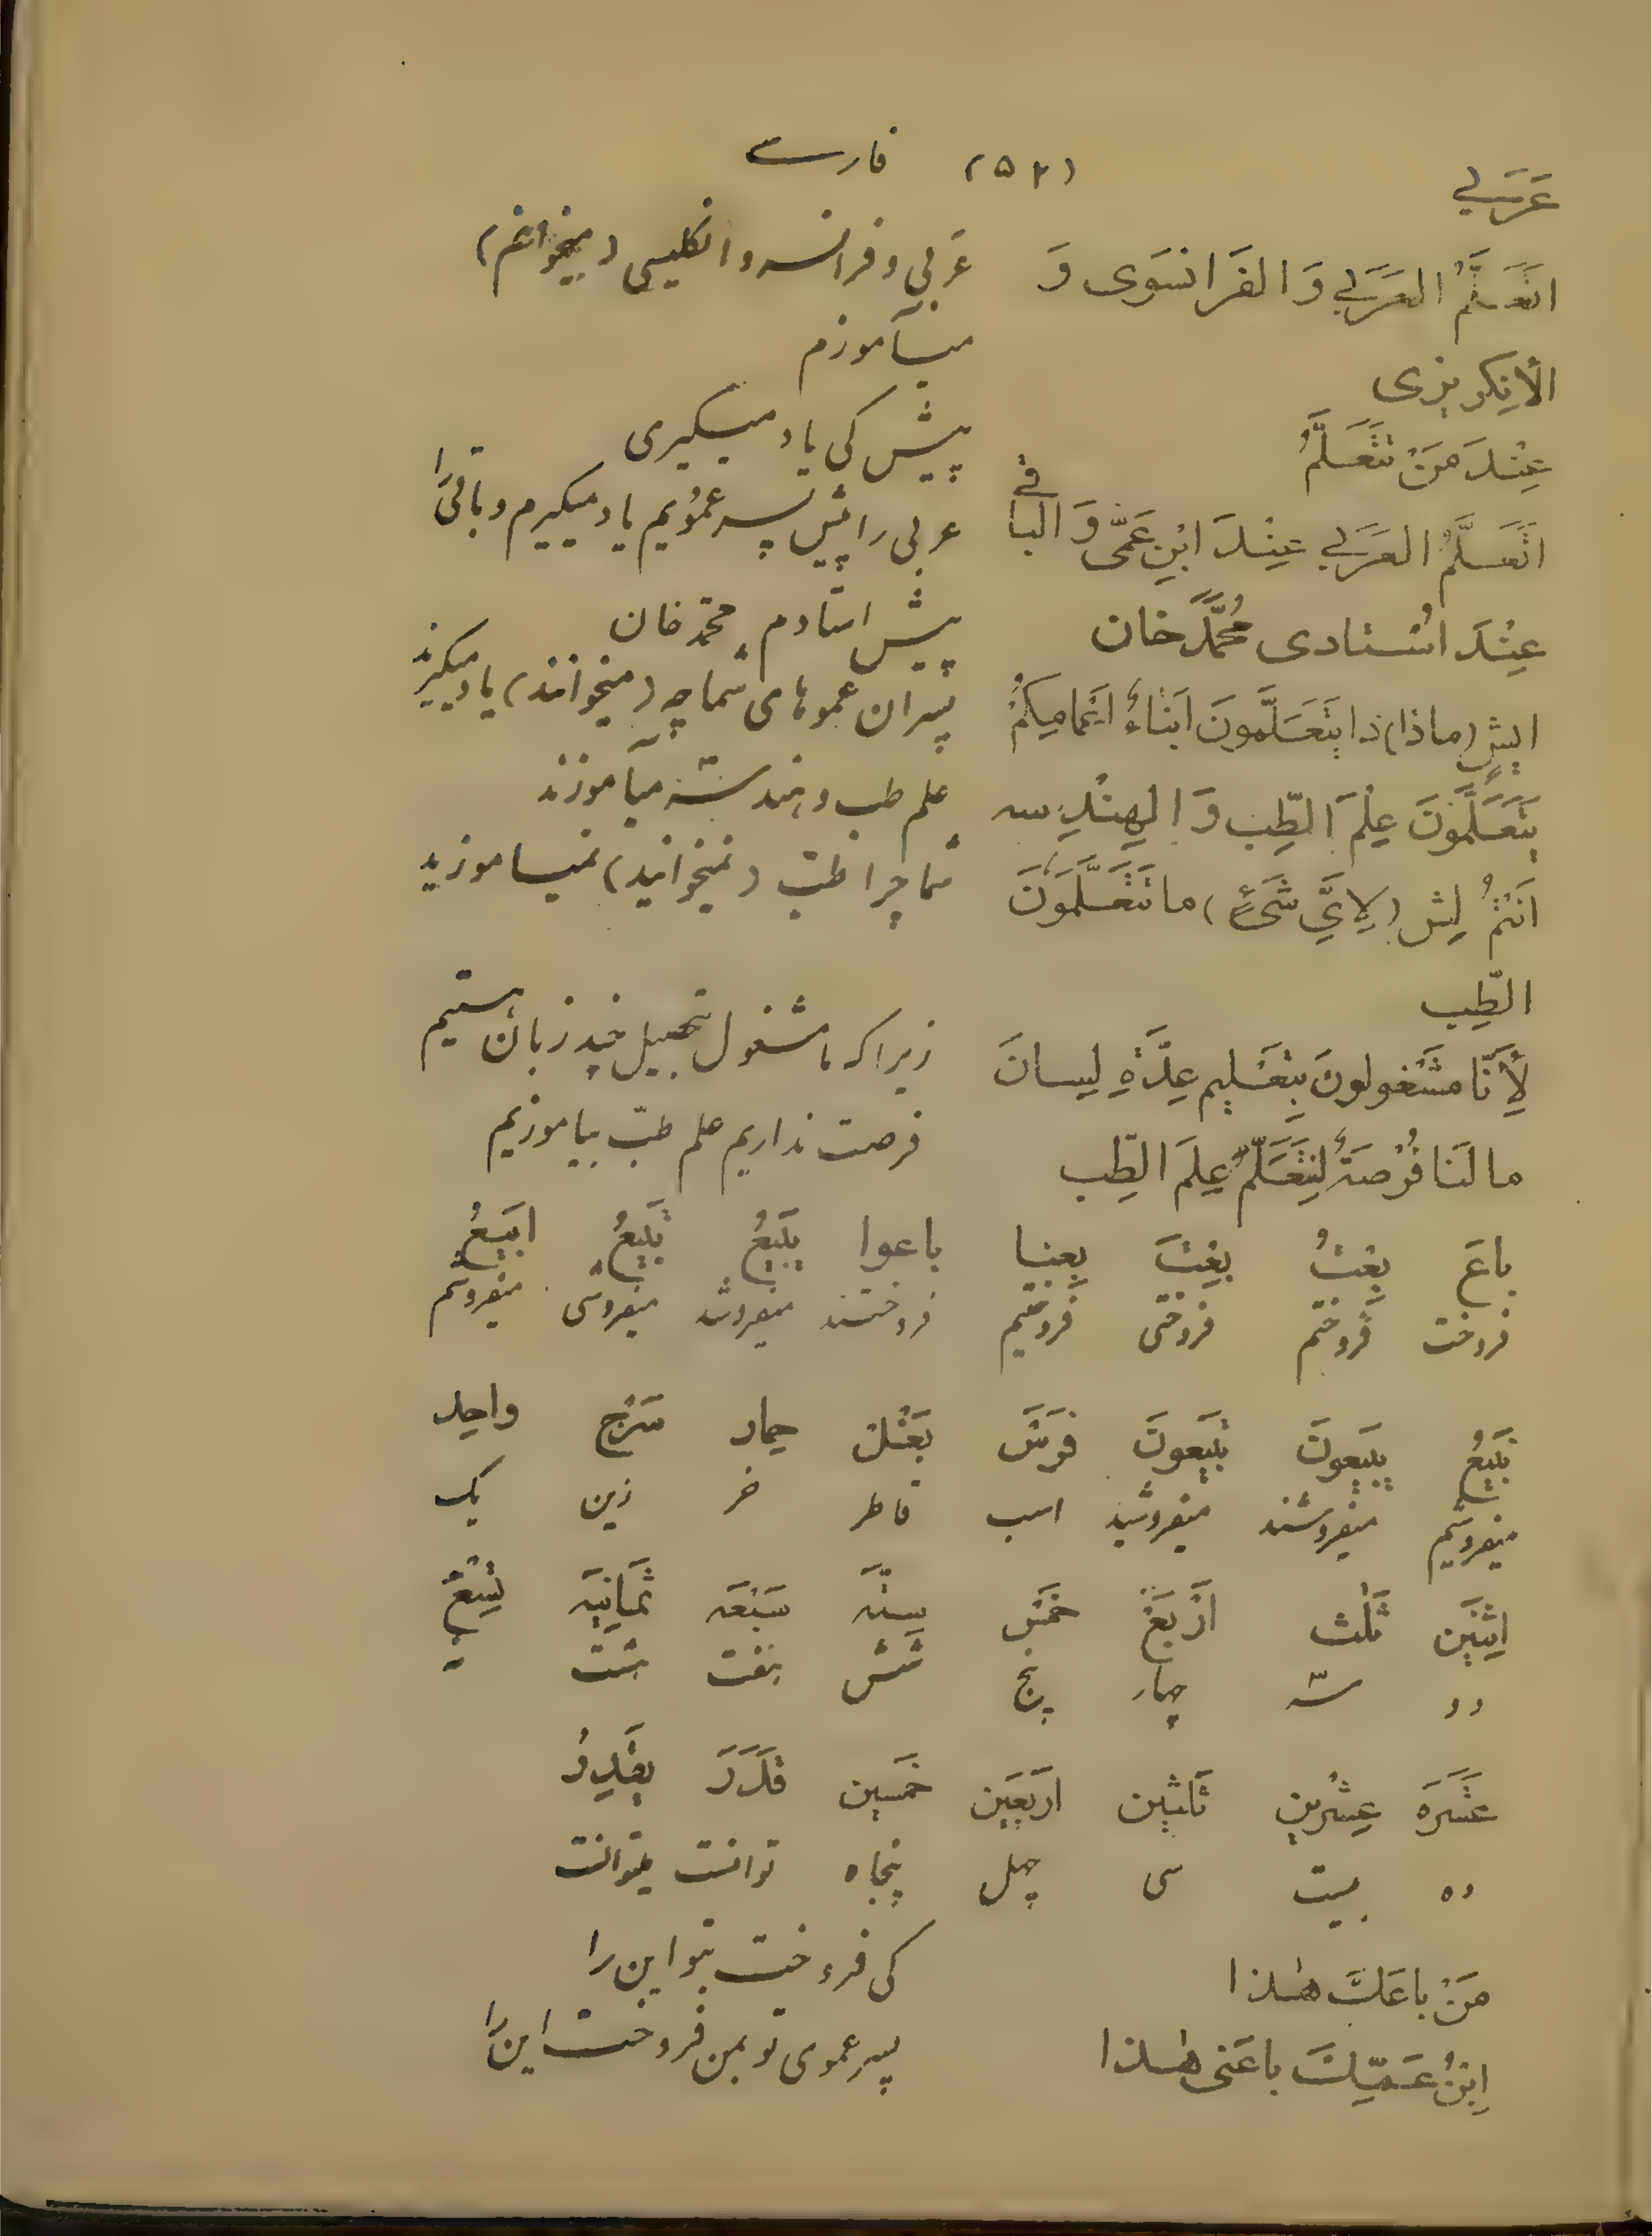 عَرَبي (۵۲) فارسے
اتَعَلَّمُ العَرَبي وَالفَرانسَوی وَ عَربی و فرانسه و انکلیسی (میخوانم)
الأنِکریزی میآموزم
عِنْدَ مَنْ تَتَعَلَّمُ پیش کی یاد میگیری
اتَعَلَّمُ العَرَبي عِنْدَ ابْنِ عَمّی وَ الباقے عربی را پیش پسر عمویم یاد میگیرم و باقی را
عِنْدَ اسْتادی مُحَمَّد خان پیش استادم محمّد خان
ایش (ماذا) ذا یَتَعَلَّمونَ ابَناءُ اعْمامِکُمْ پسران عموهای شما چه (میخوانند) یاد میگیرند
یَتَعَلَّمُونَ عِلْمَ الطِّب وَ الهِنْدِسه علم طب و هندسه میآموزند
اَنْتُمْ لِش (لِایِّ شَیْءٍ) ما تَتَعَلَّمَونَ شما چرا طبّ (نمیخوانید) نمیاموزید
الطِّب
لِأَنّا مَشْغولونَ بِتَعْلیمِ عِدَّةِ لِسانَ زیرا که ما مشغول تحصیل چند زبان هستیم
ما لَنا فُرْصَةٌ لِنَتَعَلَّمُ عِلْمَ الطِّب فرصت نداریم علم طبّ بیاموزیم
باعَ بِعْتُ بِعْتَ بِعنا باعوا یَبیعُ تَبیعُ ابیَعُ
فروخت فروختم فروختی فروختیم فروختند میفروشد میفروشی میفروشم
نَبیعُ یبیَعونَ تبیَعونَ فَرَس بَغْل حِمار سَرْج واحِد
میفروشیم میفروشند میفروشید اسب قاطر خر زین یک
اِثنَین ثَلٰث اَرْبَعْ خَمْس سِتّه سَبْعَه ثَمانیَه تِسْعْ
دو سه چهار پنج شش هفت هشت نه
عَشَرَه عِشْرین ثَلثین اربَعین خَمسین قَدَرَ یَقْدِرُ
ده بیست سی چهل پنجاه توانست میتوانست
مَنْ باعَكَ هٰذا کی فروخت بتو این را
اِبْنُ عَمِّكَ باعَنی هٰذا پسر عموی تو بمن فروخت این را